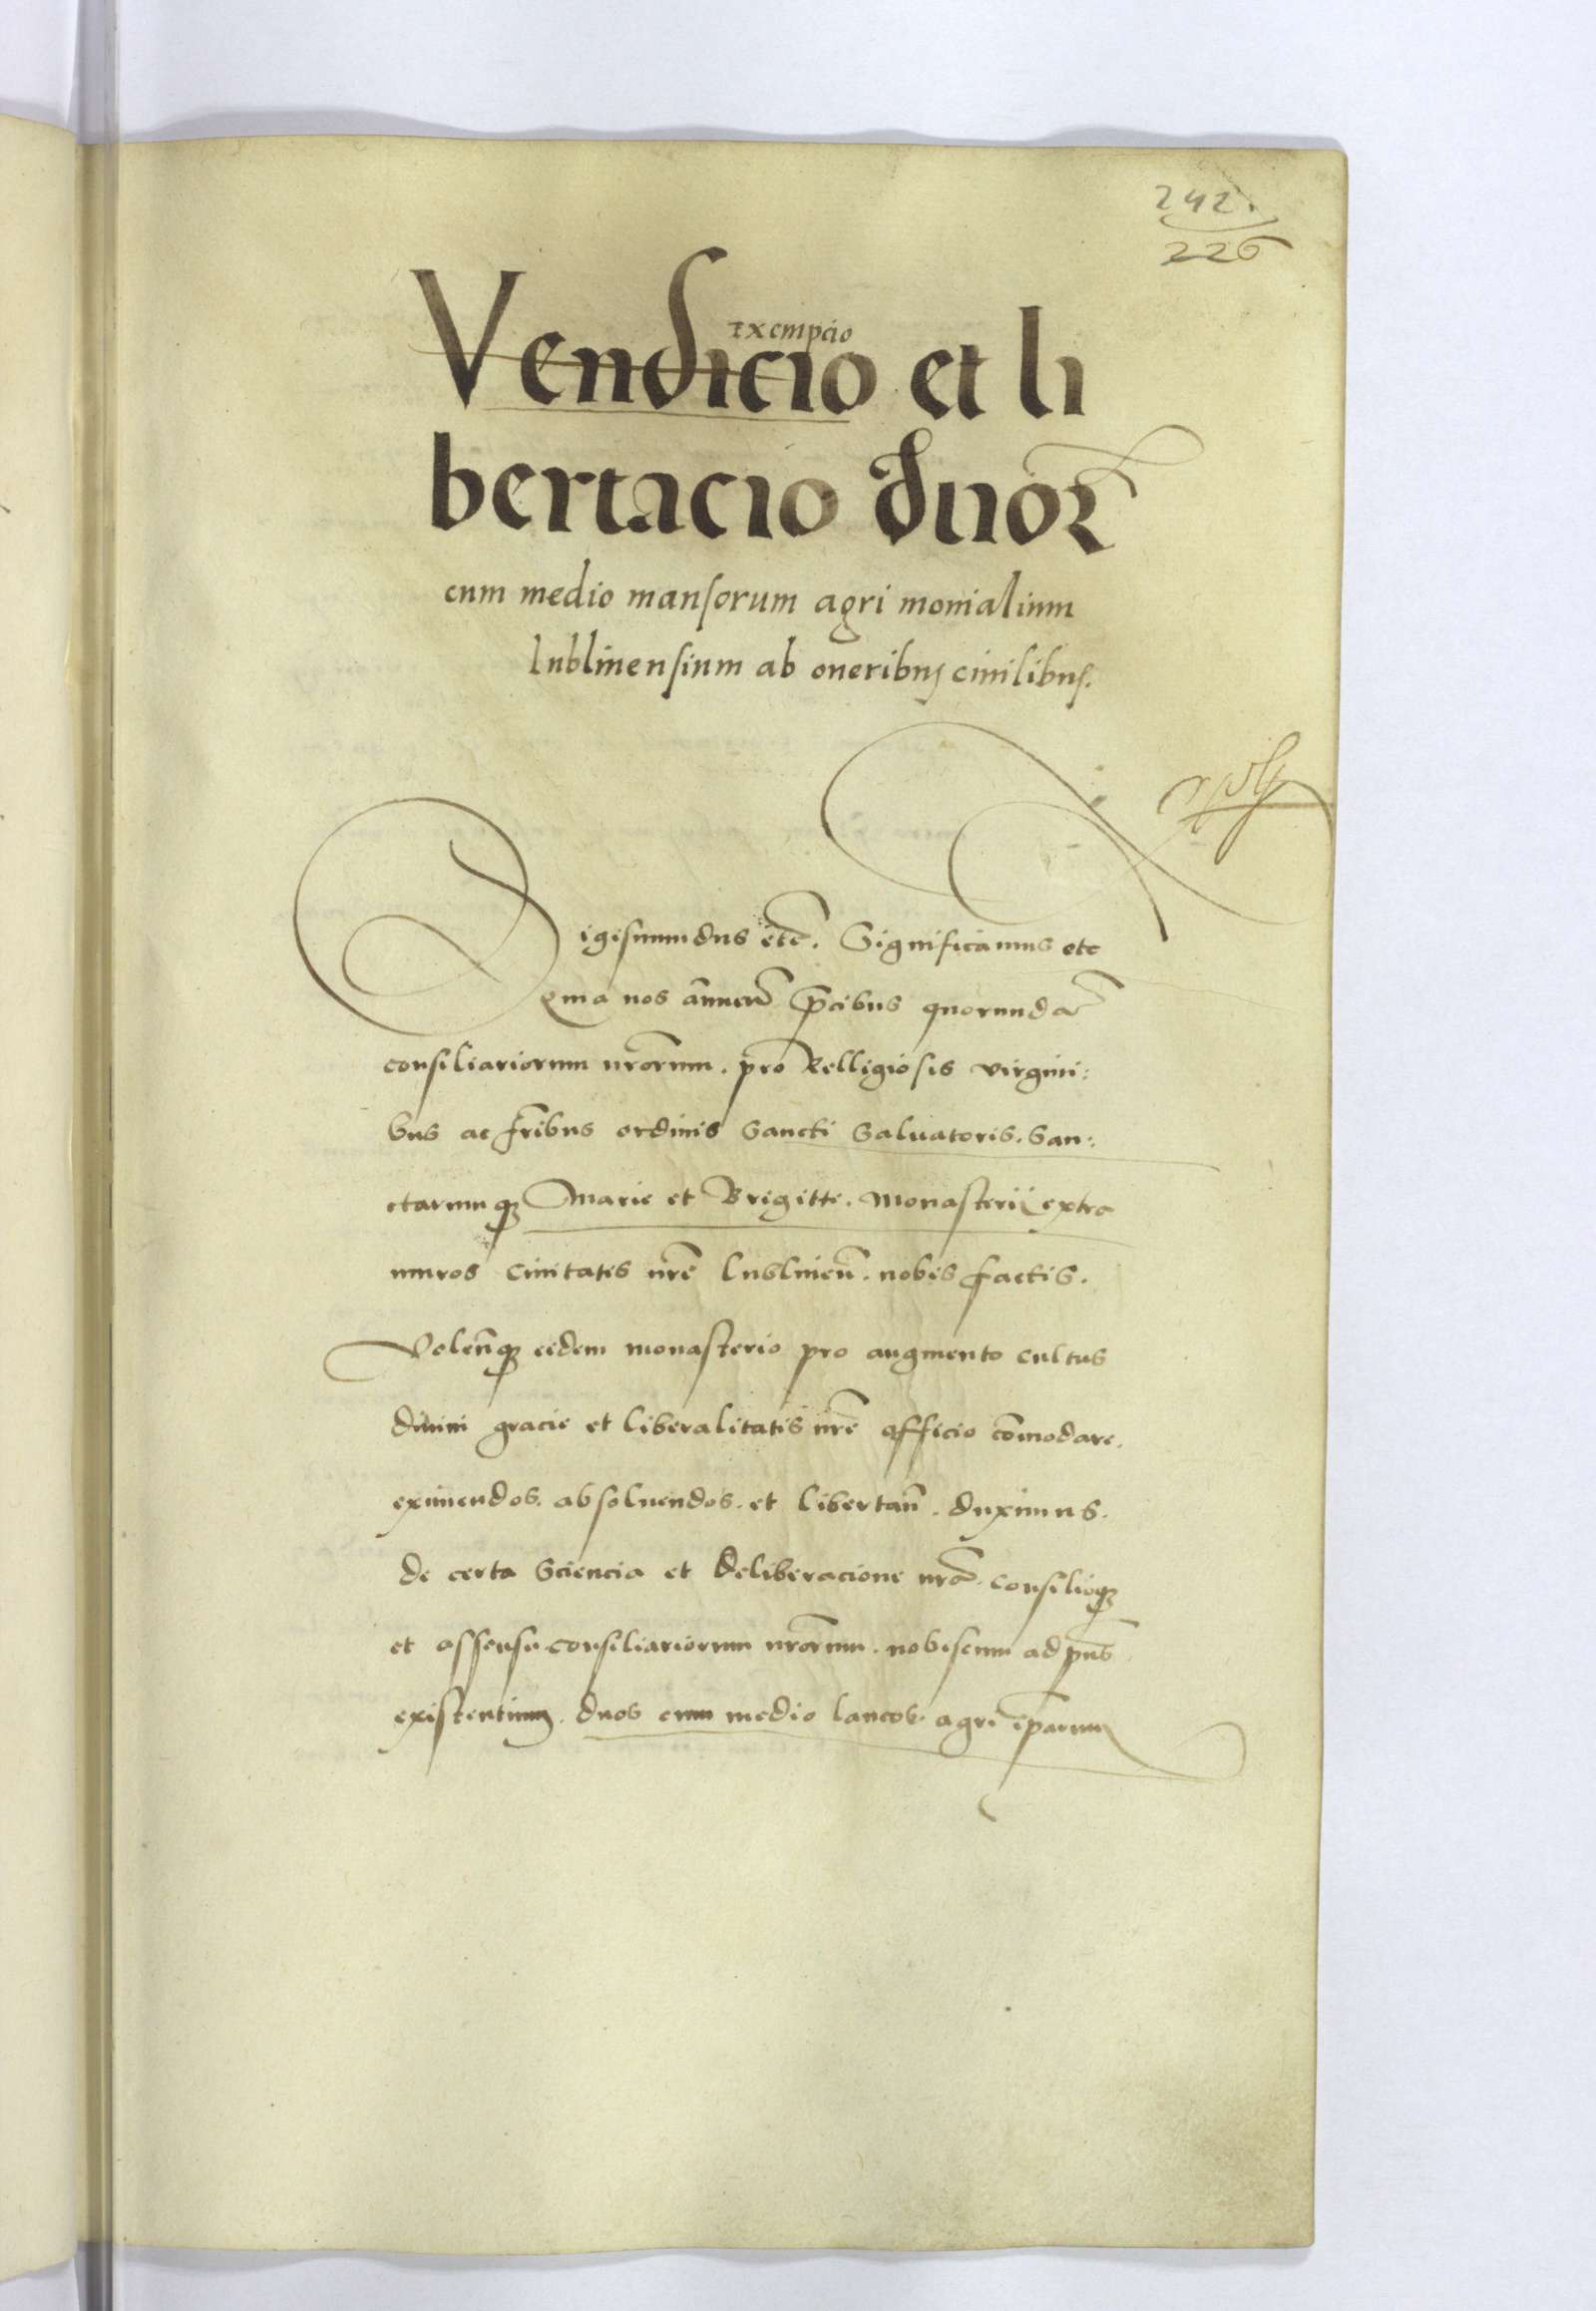 242.
226
Exempcio
Vendicio et li
bertacio duoꝝ
cum medio mansorum agri monialium
lublinensium ab oneribus ciuilibus.
Sigismundus etc̄. Significamus etc
Quia nos annuen̄ p̄cibus quorundā
consiliariorum nr̄orum. pro Relligiosis virgini:
bus ac fr̄ibus ordinis Sancti Saluatoris. San:
ctarumqꝫ Marie et Brigitte. Monasterii extra
muros Ciuitatis nr̄e Lublinen̄. nobis factis.
Volen̄qꝫ eidem monasterio pro augmento cultus
diuini gracie et liberalitatis nr̄e officio cōmodare.
eximendos. absoluendos. et libertan̄. duximus.
de certa Sciencia et deliberacione nrā. consilioqꝫ
et assensu consiliariorum nr̄orum. nobiscum ad pn̄s
existentium. duos cum medio laneos agri ip̄arum